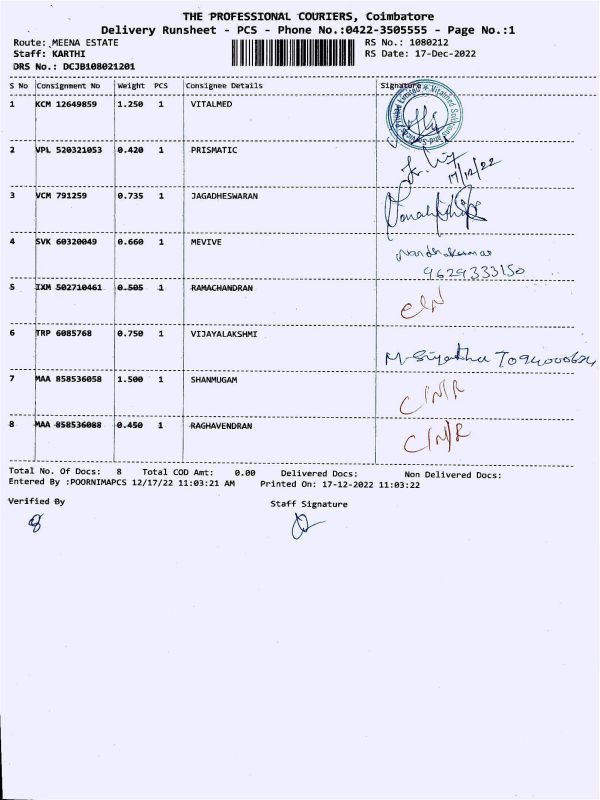 THE PROFESSIONAL COURIERS, Coimbatore
Delivery Runsheet - PCS - Phone No.:0422-3505555 - Page No.:1
Route: MEENA ESTATE RS No.: 1080212
Staff: KARTHI RS Date: 17-Dec-2022
DRS No.: DCJB108021201
S No Consignment No Weight PCS Consignee Details Signature
1 KCM 12649859 1.250 1 VITALMED
2 VPL 520321053 0.420 1 PRISMATIC
17/12/22
3 VCM 791259 0.735 1 JAGADHESWARAN
4 SVK 60320049 0.660 1 MEVIVE
Nandhakumar
9629333150
5 IXM 502710461 0.505 1 RAMACHANDRAN
6 TRP 6085768 0.750 1 VIJAYALAKSHMI
7094000624
7 MAA 858536058 1.500 1 SHANMUGAM
C/N/R
8 MAA 858536088 0.450 1 RAGHAVENDRAN
C/N/R
Total No. Of Docs: 8 Total COD Amt: 0.00 Delivered Docs: Non Delivered Docs:
Entered By :POORNIMAPCS 12/17/22 11:03:21 AM Printed On: 17-12-2022 11:03:22
Verified By Staff Signature